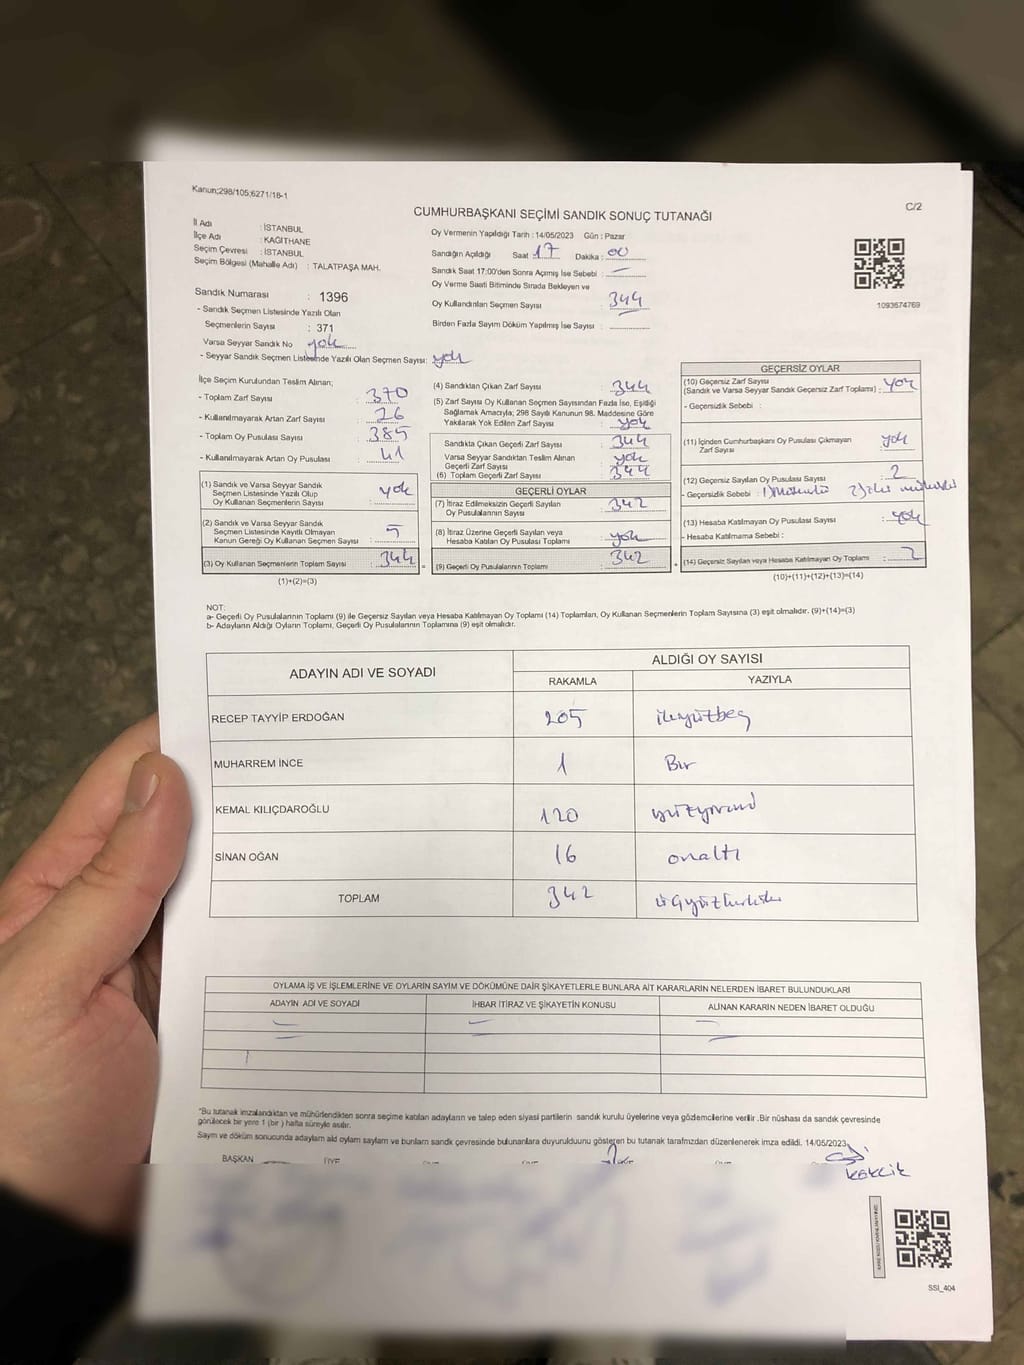 Kanun;298/105;6271/18-1
C/2
CUMHURBAŞKANI SEÇİMİ SANDIK SONUÇ TUTANAĞI
İl Adı : İSTANBUL
İlçe Adı : KAĞITHANE
Seçim Çevresi : İSTANBUL
Seçim Bölgesi (Mahalle Adı) : TALATPAŞA MAH.
Sandık Numarası : 1396
- Sandık Seçmen Listesinde Yazılı Olan
Seçmenlerin Sayısı : 371
Varsa Seyyar Sandık No yok
- Seyyar Sandık Seçmen Listesinde Yazılı Olan Seçmen Sayısı: yok
Oy Vermenin Yapıldığı Tarih : 14/05/2023 Gün : Pazar
Sandığın Açıldığı Saat 17 Dakika : 00
Sandık Saat 17:00'den Sonra Açımış İse Sebebi : —
Oy Verme Saati Bitiminde Sırada Bekleyen ve
Oy Kullandırılan Seçmen Sayısı : 344
Birden Fazla Sayım Döküm Yapılmış İse Sayısı :
1093674769
İlçe Seçim Kurulundan Teslim Alınan;
- Toplam Zarf Sayısı : 370
- Kullanılmayarak Artan Zarf Sayısı : 26
- Toplam Oy Pusulası Sayısı : 385
- Kullanılmayarak Artan Oy Pusulası : 41
(1) Sandık ve Varsa Seyyar Sandık
Seçmen Listesinde Yazılı Olup
Oy Kullanan Seçmenlerin Sayısı : yok
(2) Sandık ve Varsa Seyyar Sandık
Seçmen Listesinde Kayıtlı Olmayan
Kanun Gereği Oy Kullanan Seçmen Sayısı : 5
(3) Oy Kullanan Seçmenlerin Toplam Sayısı : 344
(1)+(2)=(3)
(4) Sandıktan Çıkan Zarf Sayısı : 344
(5) Zarf Sayısı Oy Kullanan Seçmen Sayısından Fazla İse, Eşitliği
Sağlamak Amacıyla; 298 Sayılı Kanunun 98. Maddesine Göre
Yakılarak Yok Edilen Zarf Sayısı : yok
Sandıkta Çıkan Geçerli Zarf Sayısı : 344
Varsa Seyyar Sandıktan Teslim Alınan
Geçerli Zarf Sayısı : yok
(6) Toplam Geçerli Zarf Sayısı : 344
GEÇERLİ OYLAR
(7) İtiraz Edilmeksizin Geçerli Sayılan
Oy Pusulalarının Sayısı : 342
(8) İtiraz Üzerine Geçerli Sayılan veya
Hesaba Katılan Oy Pusulası Toplamı : yok
(9) Geçerli Oy Pusulalarının Toplamı : 342
GEÇERSİZ OYLAR
(10) Geçersiz Zarf Sayısı
(Sandık ve Varsa Seyyar Sandık Geçersiz Zarf Toplamı) : yok
- Geçersizlik Sebebi :
(11) İçinden Cumhurbaşkanı Oy Pusulası Çıkmayan
Zarf Sayısı : yok
(12) Geçersiz Sayılan Oy Pusulası Sayısı : 2
- Geçersizlik Sebebi : 1) 2)
(13) Hesaba Katılmayan Oy Pusulası Sayısı : yok
- Hesaba Katılmama Sebebi :
(14) Geçersiz Sayılan veya Hesaba Katılmayan Oy Toplamı : 2
(10)+(11)+(12)+(13)=(14)
NOT:
a- Geçerli Oy Pusulalarının Toplamı (9) ile Geçersiz Sayılan veya Hesaba Katılmayan Oy Toplamı (14) Toplamları, Oy Kullanan Seçmenlerin Toplam Sayısına (3) eşit olmalıdır. (9)+(14)=(3)
b- Adayların Aldığı Oyların Toplamı, Geçerli Oy Pusulalarının Toplamına (9) eşit olmalıdır.
ADAYIN ADI VE SOYADI
ALDIĞI OY SAYISI
RAKAMLA YAZIYLA
RECEP TAYYİP ERDOĞAN 205 ikiyüzbeş
MUHARREM İNCE 1 Bir
KEMAL KILIÇDAROĞLU 120 yüzyirmi
SİNAN OĞAN 16 onaltı
TOPLAM 342 üçyüzkırkiki
OYLAMA İŞ VE İŞLEMLERİNE VE OYLARIN SAYIM VE DÖKÜMÜNE DAİR ŞİKAYETLERLE BUNLARA AİT KARARLARIN NELERDEN İBARET BULUNDUKLARI
ADAYIN ADI VE SOYADI İHBAR İTİRAZ VE ŞİKAYETİN KONUSU ALINAN KARARIN NEDEN İBARET OLDUĞU
"Bu tutanak imzalandıktan ve mühürlendikten sonra seçime katılan adayların ve talep eden siyasi partilerin sandık kurulu üyelerine veya gözlemcilerine verilir .Bir nüshası da sandık çevresinde
görülecek bir yere 1 (bir ) hafta süreyle asılır.
Sayım ve döküm sonucunda adayların aldı oyların sayıların ve bunların sandık çevresinde bulunanlara duyurulduunu gösteren bu tutanak tarafımızdan düzenlenerek imza edildi. 14/05/2023
BAŞKAN ÜYE
SSI_404